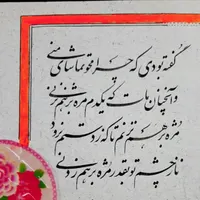 گفته بودی که چرا محو تماشای منی
وآنچنان مات که یکدم مژه بر هم نزنی
مژه بر هم نزنم تا که ز دستم نرود
ناز چشم تو بقدر مژه بر هم زدنی